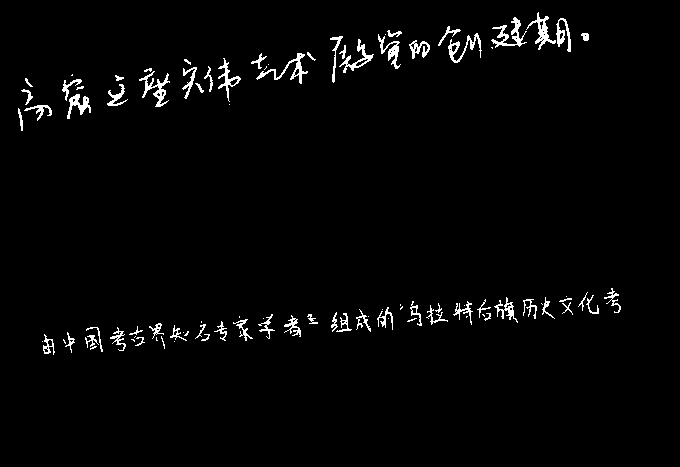 高窟这座宏伟艺术殿堂的创建期。
由中国考古界知名专家学者组成的“乌拉特后旗历史文化考